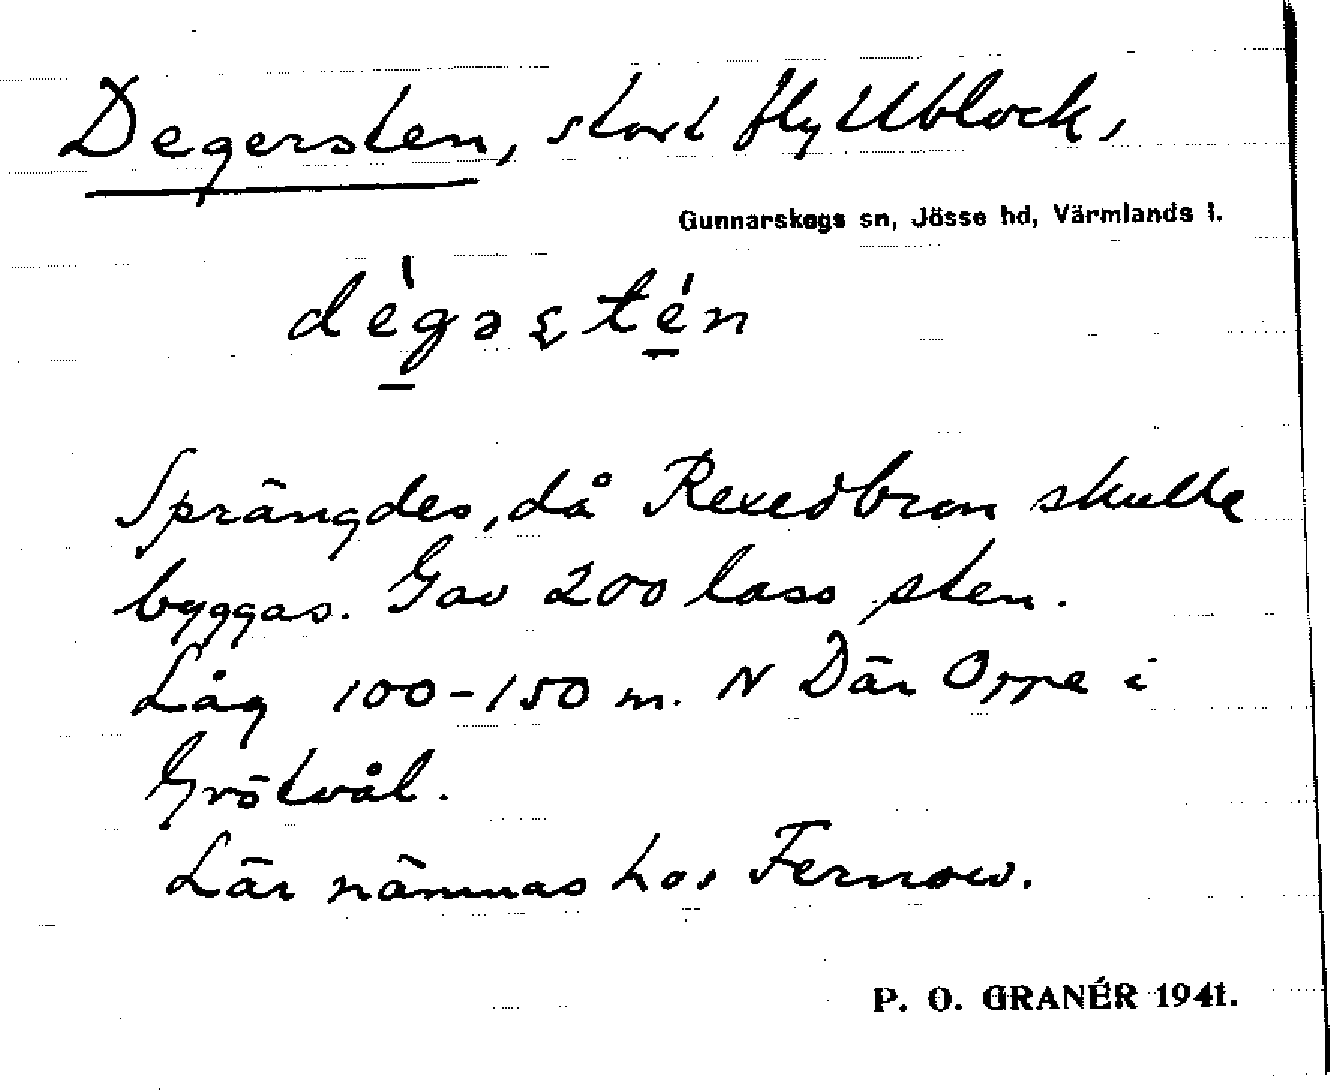 Degersten, stort flyttblock,
Gunnarskogs sn, Jösse hd, Värmlands l.
Sprängdes, då Rexedbron skulle
byggas. Gav 200 lass sten.
Låg 100-150 m. N Där Oppe i
Grötvål.
Lär nämnas hos Fernow.
P. O. GRANÉR 1941.